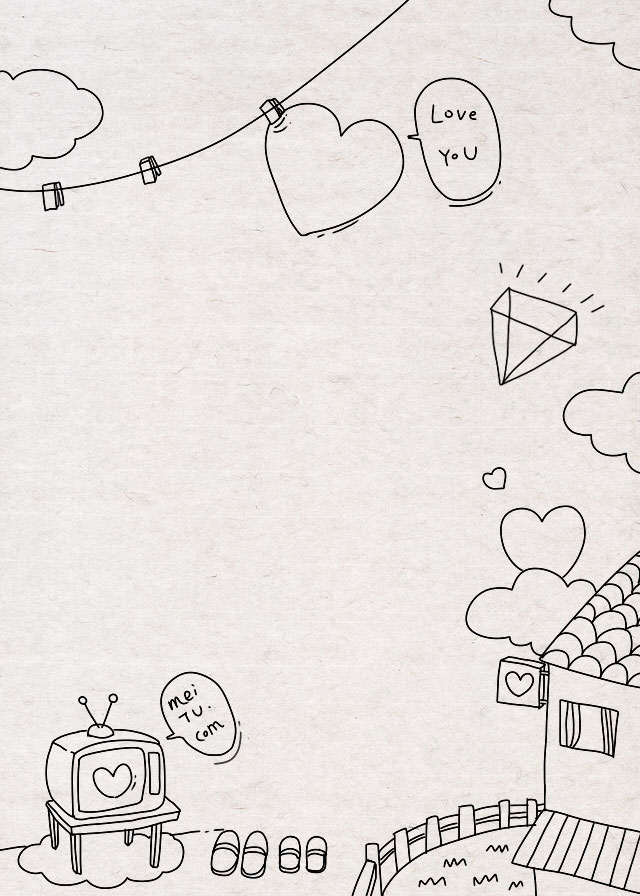 Love
YoU
mei
TU.
com